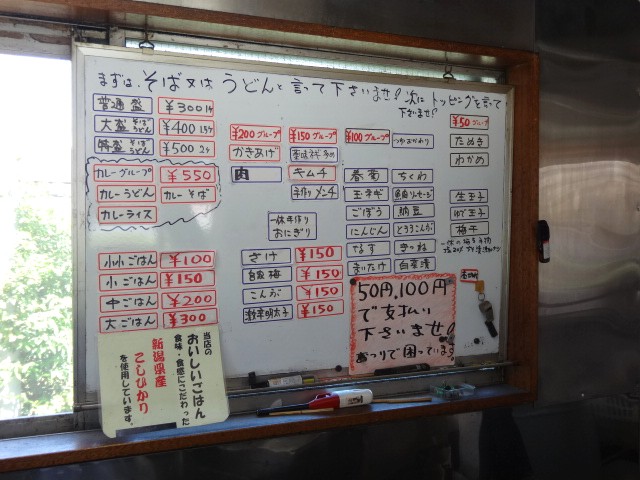 まずは、そば又はうどんと言って下さいませ！次にトッピングを言って
下さいませ！
普通盛 ¥300 1ケ
大盛 そば うどん ¥400 1.5ケ
特盛 そば うどん ¥500 2ケ
カレーグループ ¥550
カレーうどん カレーそば
カレーライス
小小ごはん ¥100
小ごはん ¥150
中ごはん ¥200
大ごはん ¥300
¥200グループ
かきあげ
肉
¥150グループ
キムチ
手作りメンチ
一休手作り
おにぎり
さけ ¥150
自家梅 ¥150
こんぶ ¥150
激辛明太子 ¥150
¥100グループ
つゆおかわり
春菊 ちくわ
玉ネギ 魚肉ソーセージ
ごぼう 納豆
にんじん とろろこんぶ
なす
まいたけ 白菜漬
¥50グループ
たぬき
わかめ
生玉子
ゆで玉子
梅干
50円,100円
で支払い
下さいませ!
おつりで困っています!
当店の
おいしいごはん
食味・食感にこだわった
新潟県産
こしひかり
を使用しています。